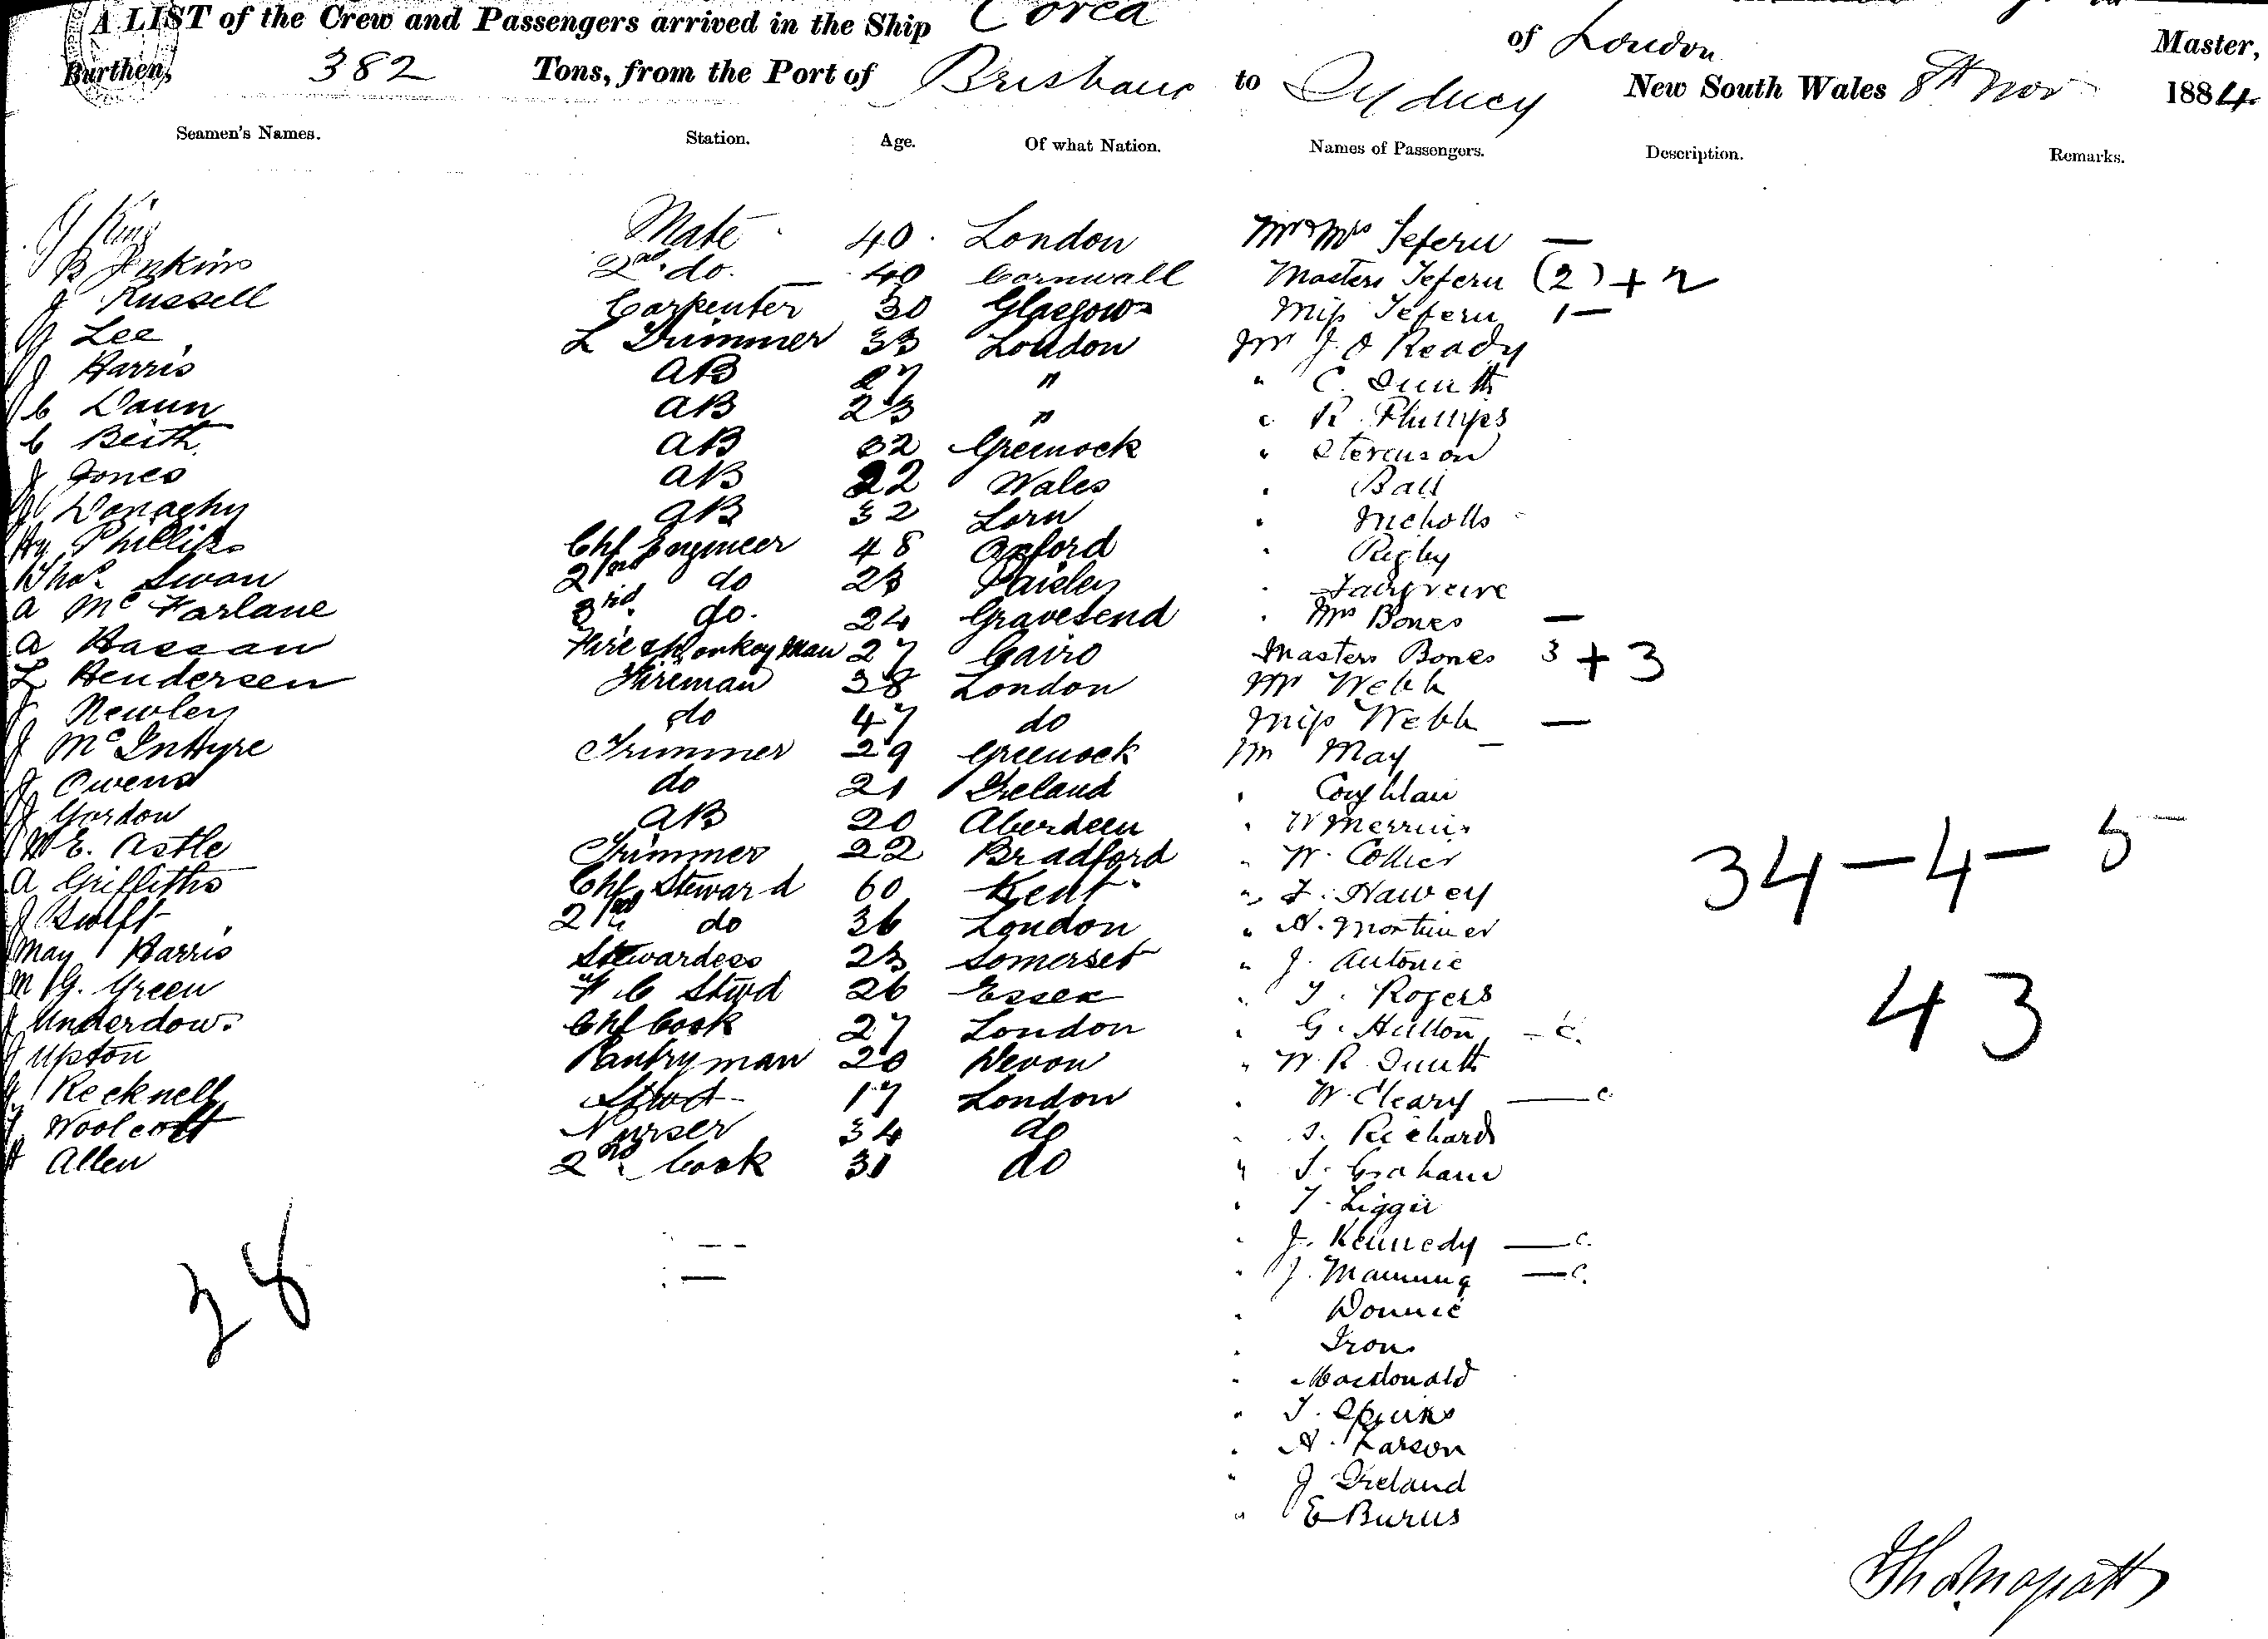 A LIST of the Crew and Passengers arrived in the Ship Corea of London Master,
Burthen, 382 Tons, from the Port of Brisbane to Sydney New South Wales 8th Nov 1884
Seamen's Names. Station. Age. Of what Nation. Names of Passengers. Description. Remarks.
J King Mate 40 London Mr & Mrs Jefern —
B Jenkins 2nd do. 40 Cornwall Masters Jefern (2) + 2
J Russell Carpenter 30 Glasgow Miss Jefern 1 —
Lee L Trimmer 33 London Mr J. O Ready
J Harris AB 27 " " C. Smith
C Daun AB 23 " " R. Phillips
C Beith AB 32 Greenock " Stevenson
J Jones AB 22 Wales " Ball
Donaghy AB 32 Lorn " Nicholls
Hy Phillips Chf Engineer 48 Oxford " Rigby
Thos Swan 2nd do 23 Paisley " Fairgreive
A McFarlane 3rd do. 24 Gravesend " Mrs Bones —
A Hassan Fire & Donkeyman 27 Cairo Masters Bones 3 + 3
L Hendersen Fireman 38 London Mr Webb
J Newley do 47 do Miss Webb —
J McIntyre Trimmer 29 Greenock Mr May
J Owens do 21 Ireland " Coghlan
J Gordon AB 20 Aberdeen " W Merrin
W E. Astle Trimmer 22 Bradford " W. Collier
34 — 4 — 5
A Griffiths Chf Steward 60 Kent " F. Harvey
J Swift 2nd do 36 London " A. Mortimer
May Harris Stewardess 23 Somerset " J. Antonie
M G. Green F C Stwd 26 Essex " T. Rogers
43
J Underdown Chf Cook 27 London " G. Hutton — C.
J Upton Pantryman 20 Devon " W. R. Smith
Recknell Stwd 17 London " W. Cleary — C.
Woolcott Purser 34 do " S. Richards
H Allen 2nd Cook 31 do " J. Graham
" T. Liggit
28
" J. Kennedy — C.
" J. Manning — C.
" Donnie
" Irons
" Macdonald
" T. Spinks
" A. Larson
" J Ireland
" E Burns